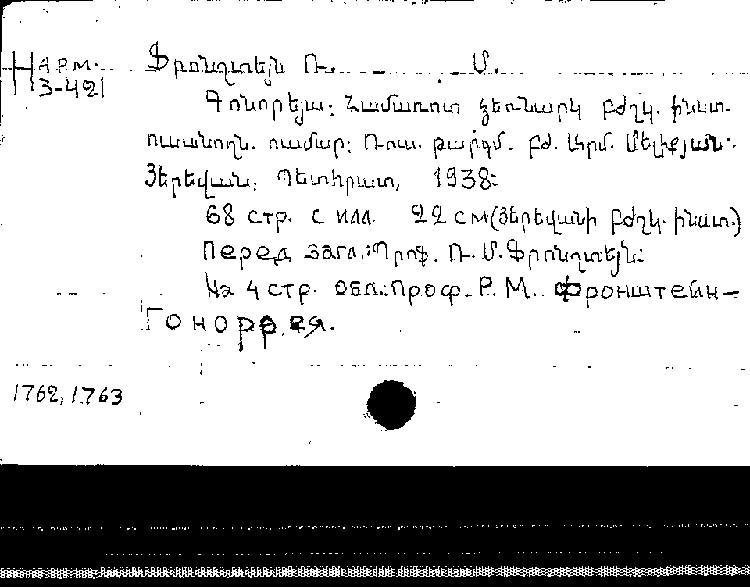 Нарм. Ֆրոնշտեյն Ռ. Մ.
3-421
Գոնորեյա: Համառոտ ձեռնարկ բժշկ. ինստ.
ուսանող. համար: Ռուս. թարգմ. բժ. Արմ. Մելիքյան:
Յերեվան, Պետհրատ, 1938:
68 стр. с илл. 22 см (Յերեվանի բժշկ. ինստ.)
Перед загл.: Պրոֆ. Ռ. Մ. Ֆրոնշտեյն:
На 4 стр. обл.: Проф. Р. М. Фронштейн—
Гоноррея.
1762, 1763